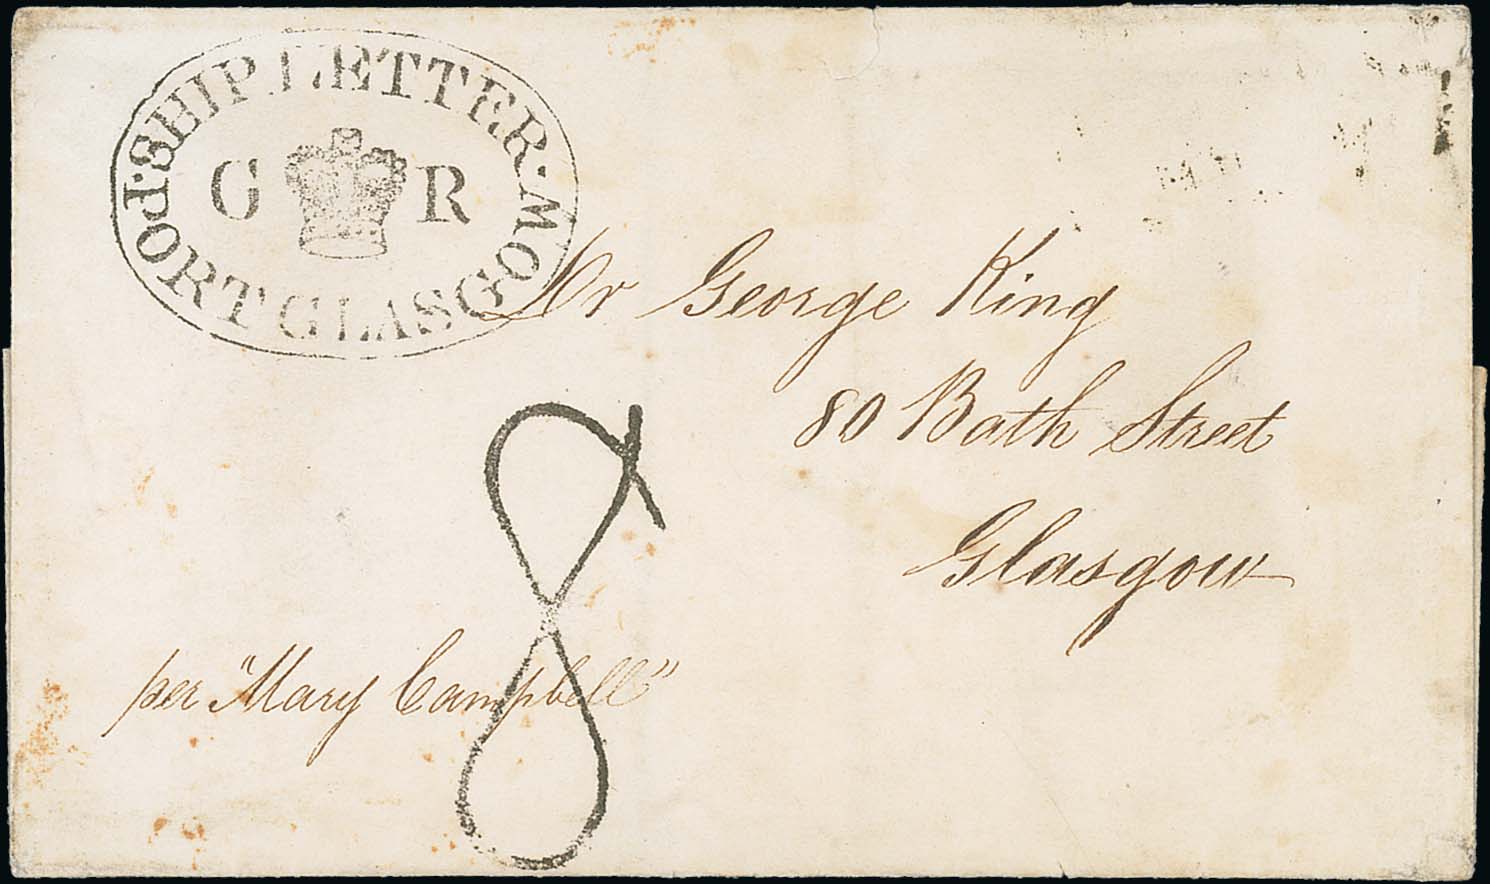 SHIP LETTER · PORT GLASGOW ·
G R
Mr George King
80 Bath Street
Glasgow
8
per "Mary Campbell"